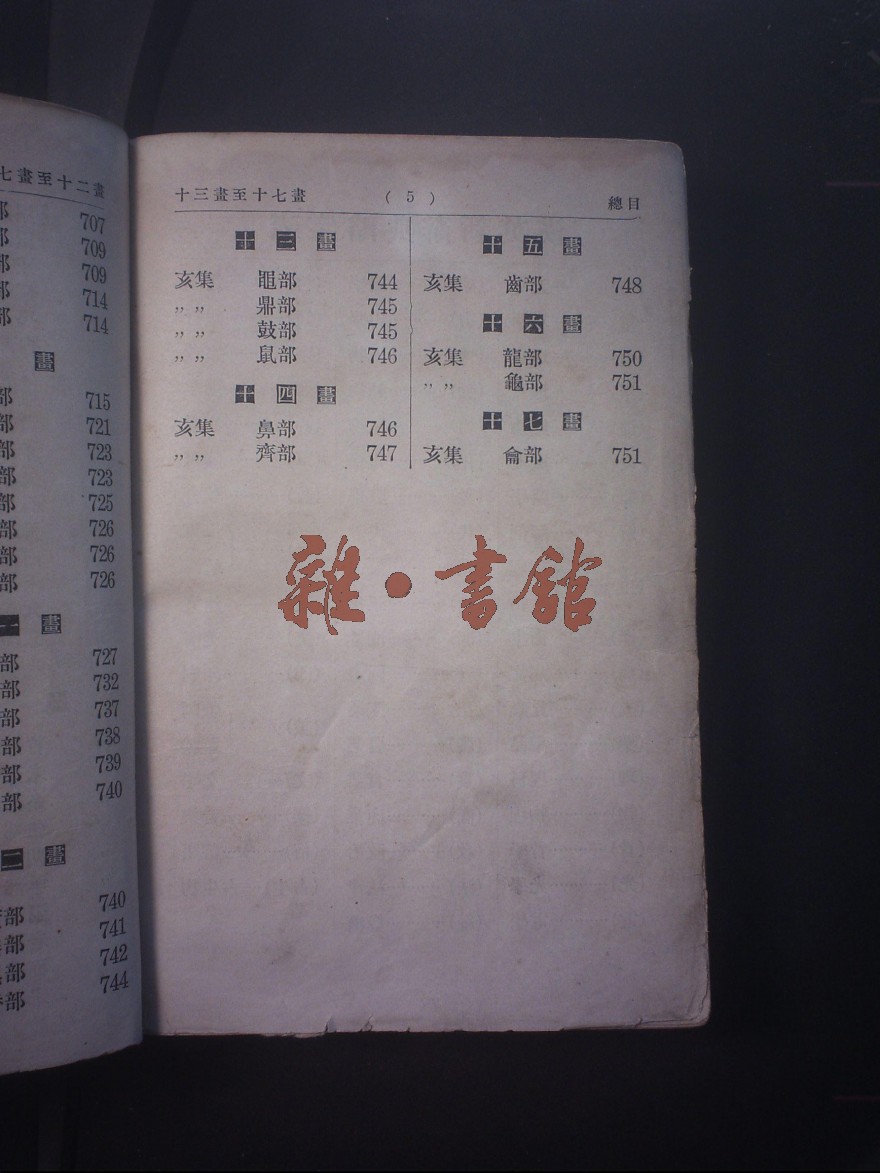 七畫至十二畫
部 707
部 709
部 709
部 714
部 714
畫
部 715
部 721
部 723
部 723
部 725
部 726
部 726
部 726
一畫
部 727
部 732
部 737
部 738
部 739
部 740
二畫
部 740
部 741
部 742
部 744
十三畫至十七畫 (5) 總目
十三畫
亥集 黽部 744
,, ,, 鼎部 745
,, ,, 鼓部 745
,, ,, 鼠部 746
十四畫
亥集 鼻部 746
,, ,, 齊部 747
十五畫
亥集 齒部 748
十六畫
亥集 龍部 750
,, ,, 龜部 751
十七畫
亥集 龠部 751
雜·書館